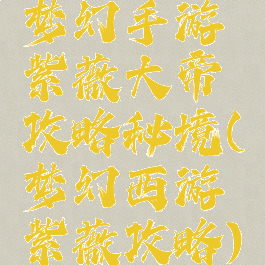 梦幻手游
紫薇大帝
攻略秘境(
梦幻西游
紫薇攻略)